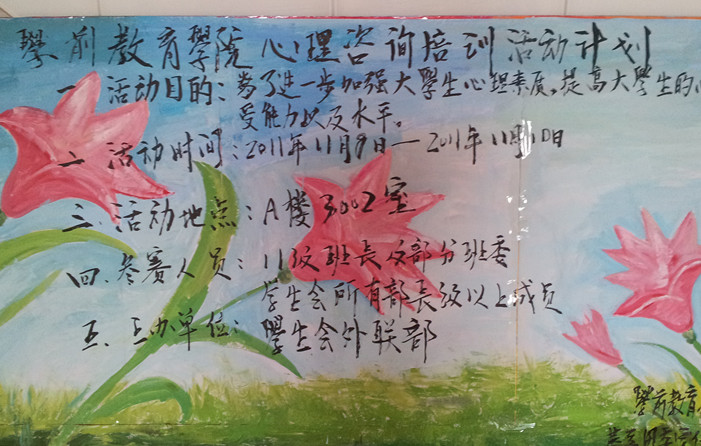 學前教育學院心理咨询培训活动计划
一、活动目的:为了进一步加强大學生心理素质,提高大學生的心
受能力以及水平。
二、活动时间:2011年11月9日—2011年11月10日
三、活动地点:A楼3002室
四、参赛人员:11级班長及部分班委
学生会所有部長级以上成员
五、主办单位:學生会外联部
學前教育